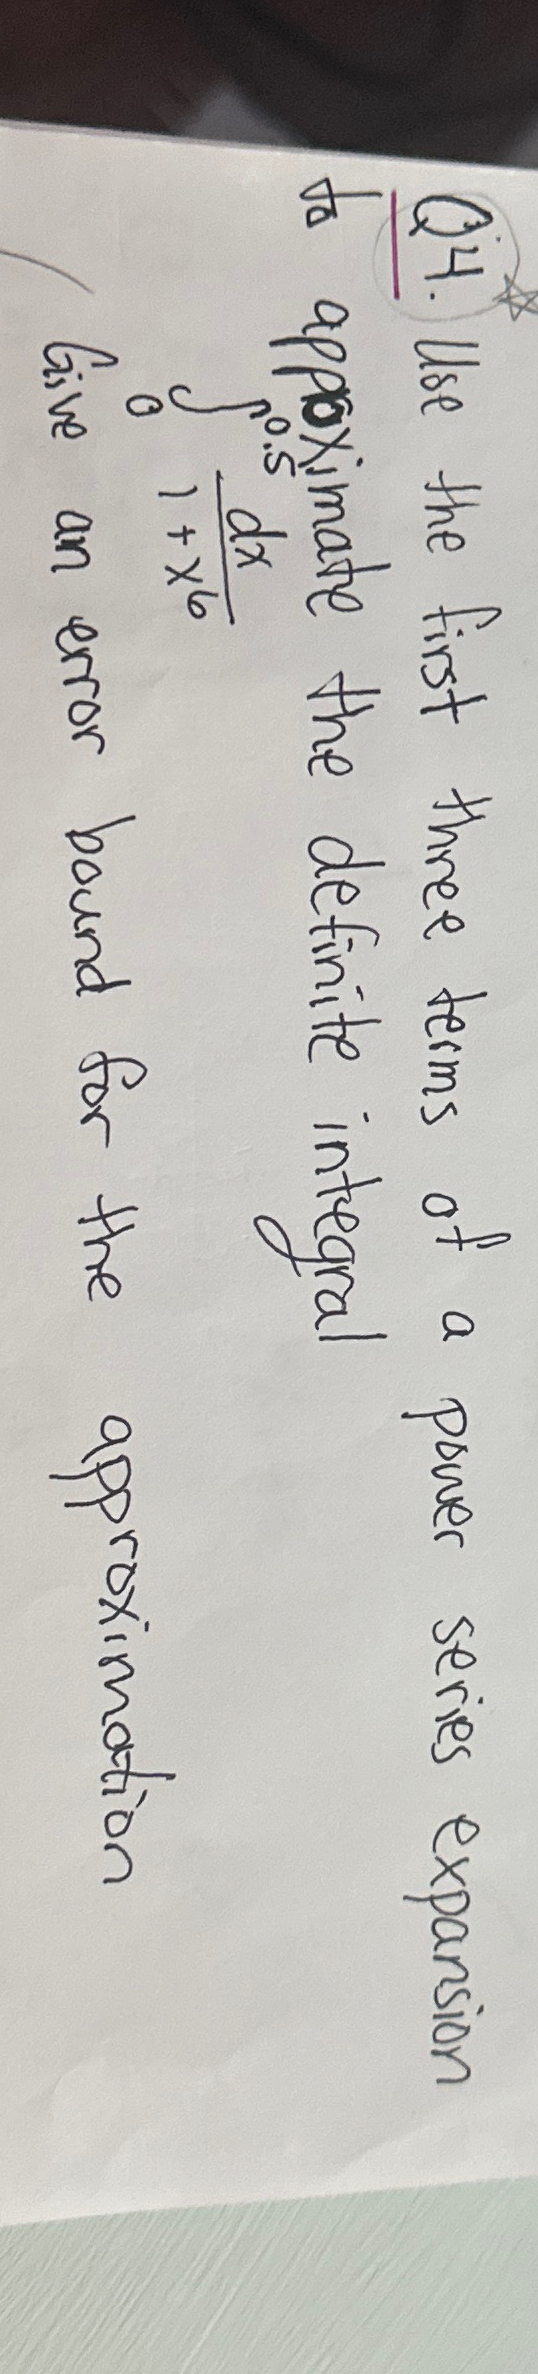 Q4. Use the first three terms of a power series expansion
to approximate the definite integral
∫₀^0.5 dx / 1 + x⁶
Give an error bound for the approximation